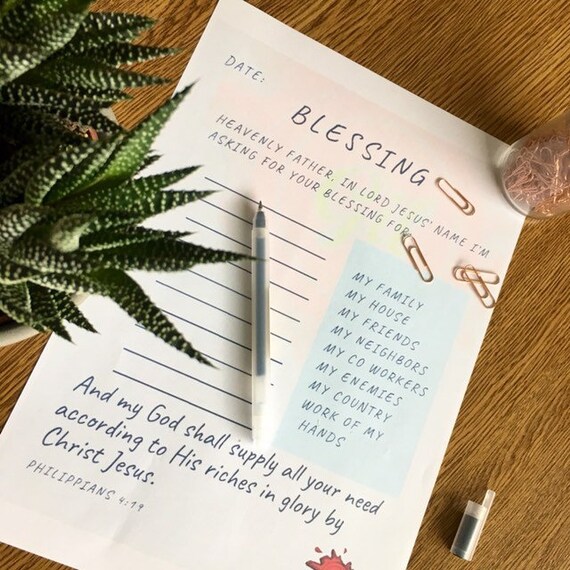 DATE:
BLESSING
HEAVENLY FATHER, IN LORD JESUS' NAME I'M
ASKING FOR YOUR BLESSING FOR
MY FAMILY
MY HOUSE
MY FRIENDS
MY NEIGHBORS
MY CO WORKERS
MY ENEMIES
MY COUNTRY
WORK OF MY
HANDS
And my God shall supply all your need
according to His riches in glory by
Christ Jesus.
PHILIPPIANS 4:19